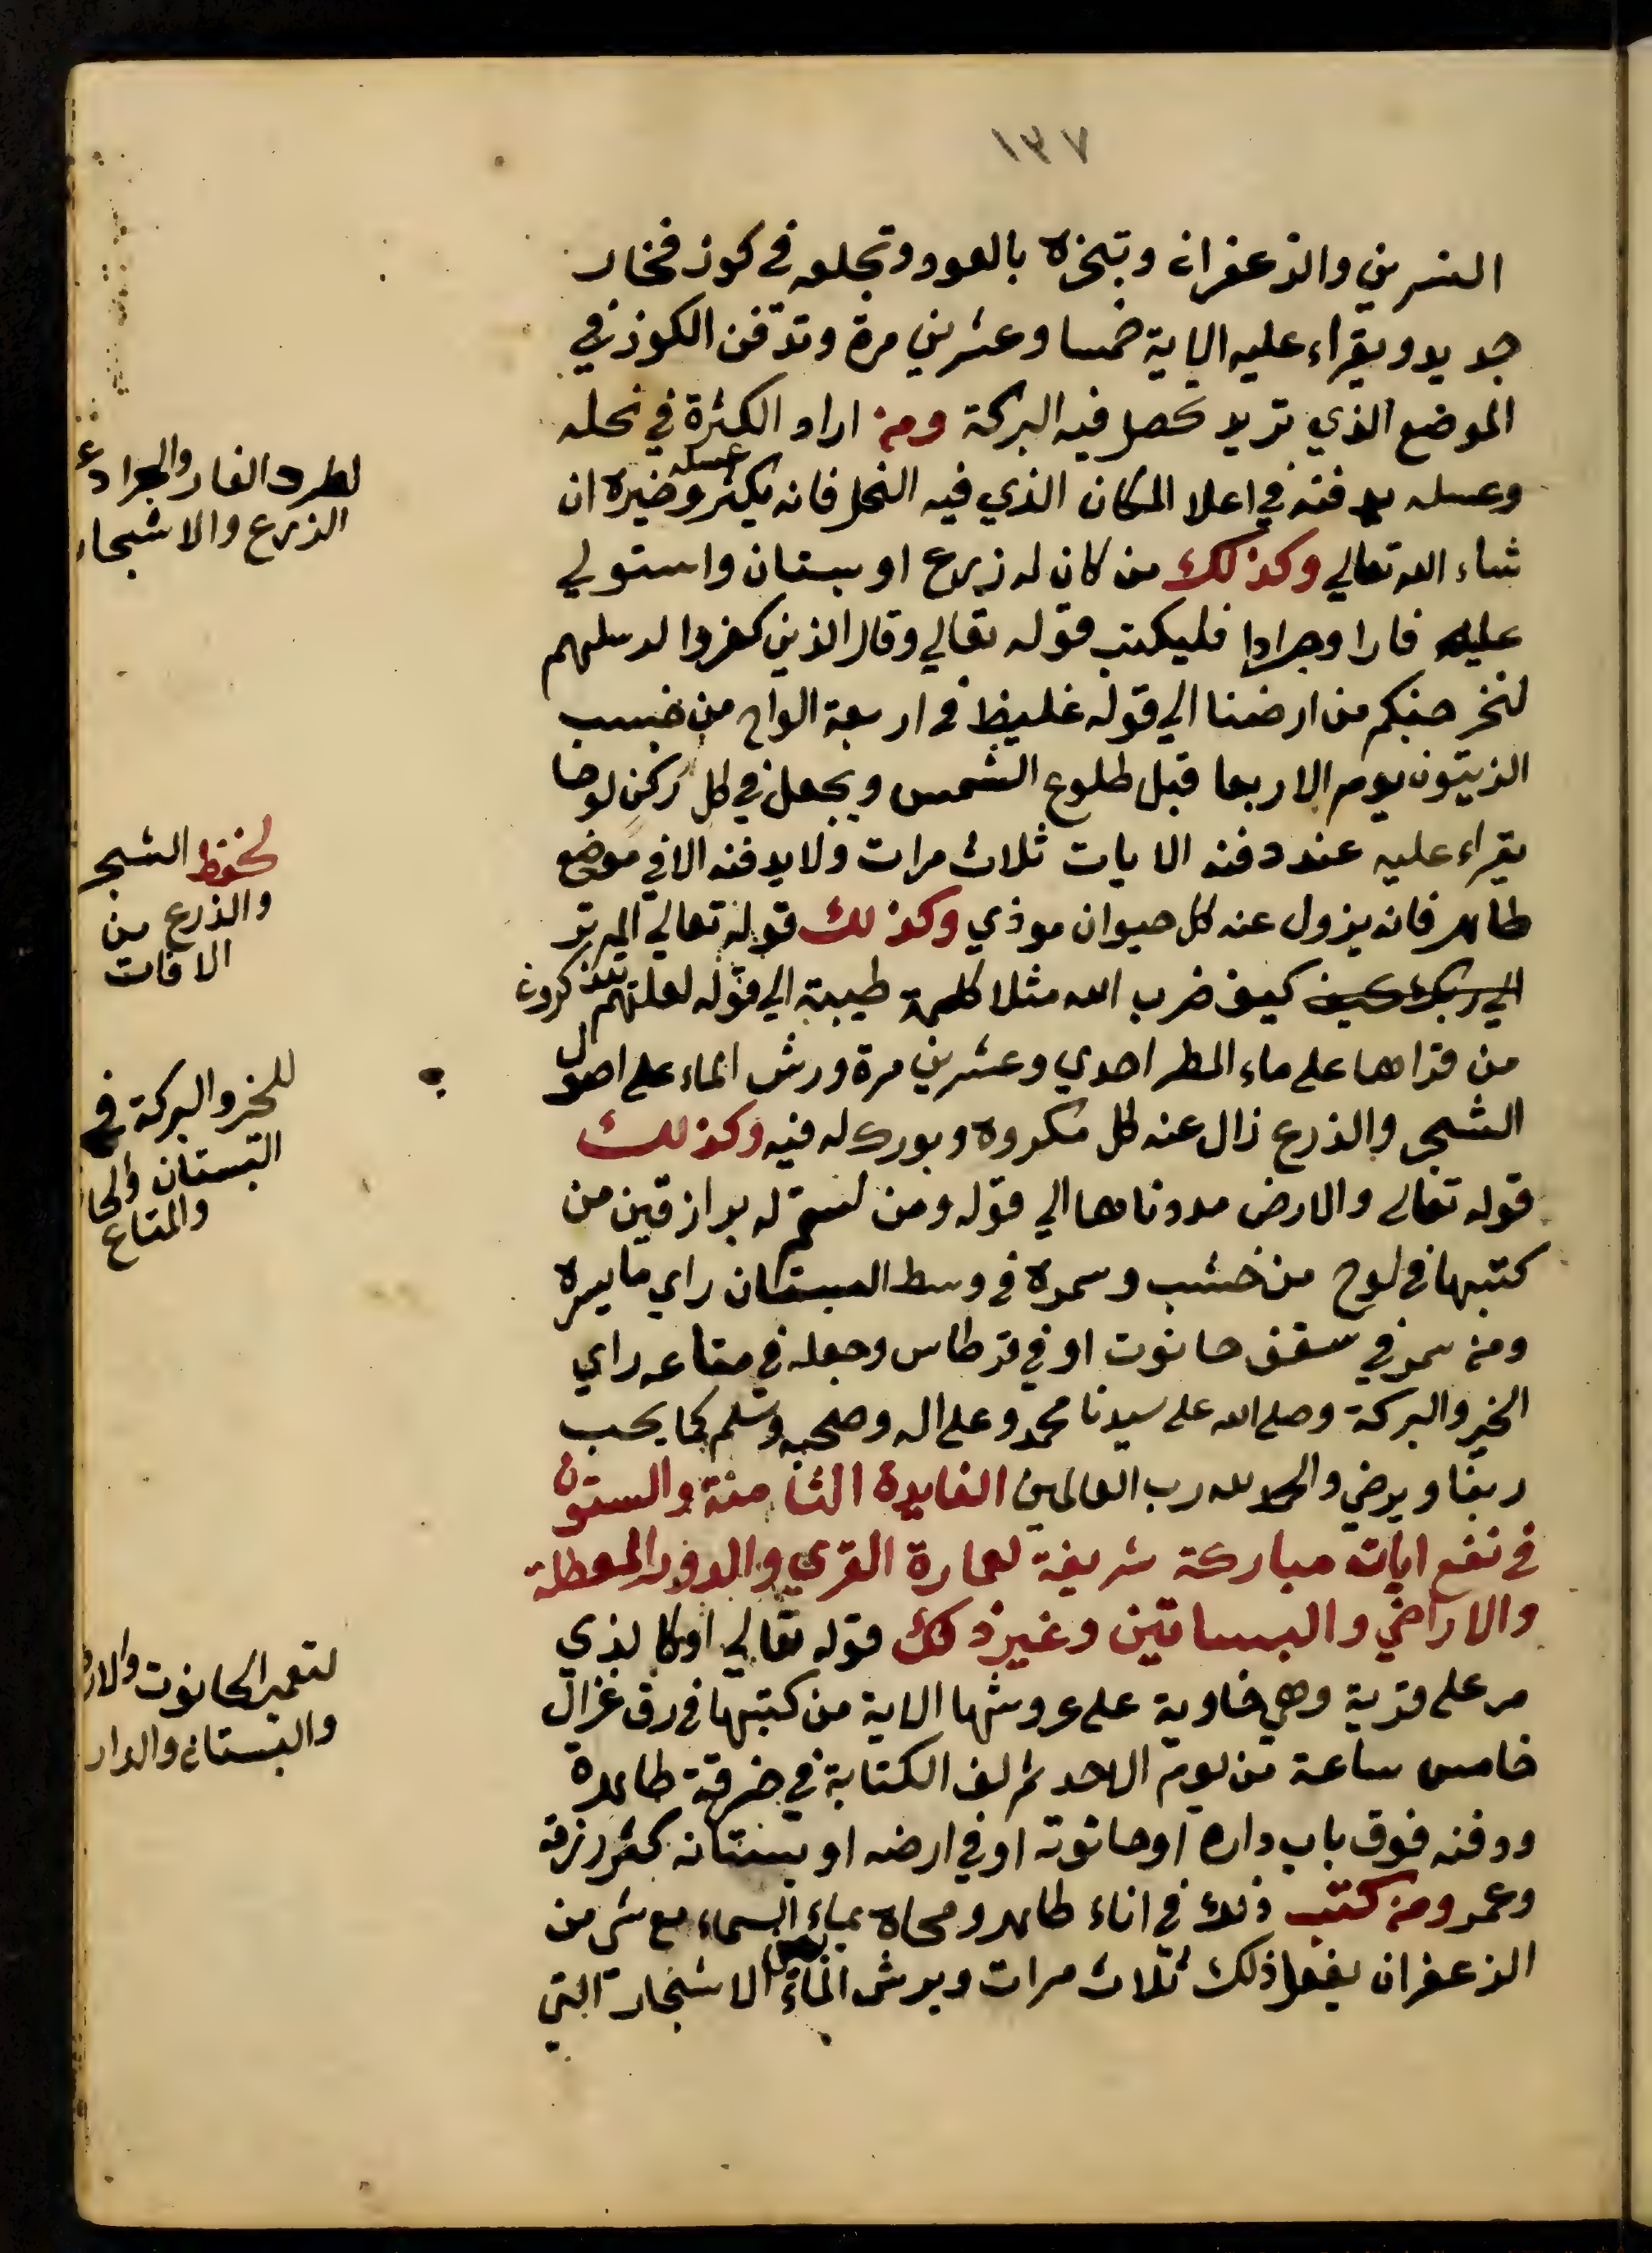 ١٣٧
النسرين والزعفران وتبخره بالعود وتجعله في كوز فخار
جديد ويقراء عليه الاية خمسا وعشرين مرة وتدفن الكوز في
الموضع الذي تريد تحصل فيه البركة ومن اراد الكثرة في نحله
وعسله يدفنه في اعلا المكان الذي فيه النحل فانه يكثر عسله وخيره ان
شاء الله تعالي وكذلك من كان له زرع او بستان واستولي
عليه فارا وجرادا فليكتب قوله تعالي وقال الذين كفروا لرسلهم
لنخرجنكم من ارضنا الي قوله غليظ في اربعة الواح من خشب
الزيتون يوم الاربعا قبل طلوع الشمس ويجعل في كل ركن لوحا
يقراء عليه عند دفنه الايات ثلاث مرات ولا يدفنه الا في موضع
طاهر فانه يزول عنه كل حيوان موذي وكذلك قوله تعالي الم تر
الي ربك كيف كيف ضرب الله مثلا كلمة طيبة الي قوله لعلهم يتذكرون
من قراها علي ماء المطر احدي وعشرين مرة ورش الماء علي اصول
الشجر والزرع زال عنه كل مكروه وبورك له فيه وكذلك
قوله تعالي والارض مددناها الي قوله ومن لستم له برازقين من
كتبها في لوح من خشب وسمره في وسط البستان راي ما يسره
ومن سمر في سقف حانوت او في قرطاس وجعله في متاعه راي
الخير والبركة وصلي الله علي سيدنا محمد وعلي اله وصحبه وسلم كما يحب
ربنا ويرضي والحمد لله رب العالمين الفايدة الثامنة والستون
في نفع ايات مباركة شريفة لعمارة القري والدور المعطلة
والاراضي والبساتين وغير ذلك قوله تعالي او كالذي
مر علي قرية وهي خاوية علي عروشها الاية من كتبها في رق غزال
خامس ساعة من يوم الاحد ثم لف الكتابة في خرقة طاهرة
ودفنه فوق باب داره او حانوته او في ارضه او بستانه كثر رزقه
وعمر ومن كتب ذلك في اناء طاهر ومحاه بماء السماء مع شي من
الزعفران يفعل ذلك ثلاث مرات ويرش الماء الاشجار التي
لطرد الفار والجراد ع
الزرع والاشجار
لحفظ الشجر
والزرع من
الافات
للخير والبركة في
البستان والحا
والمتاع
لتعمير الحانوت والار
والبستان والدار